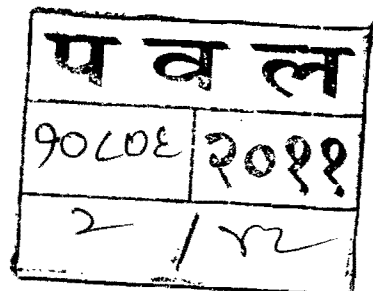 प व ल
१०८०६ २०११
२ / ४२